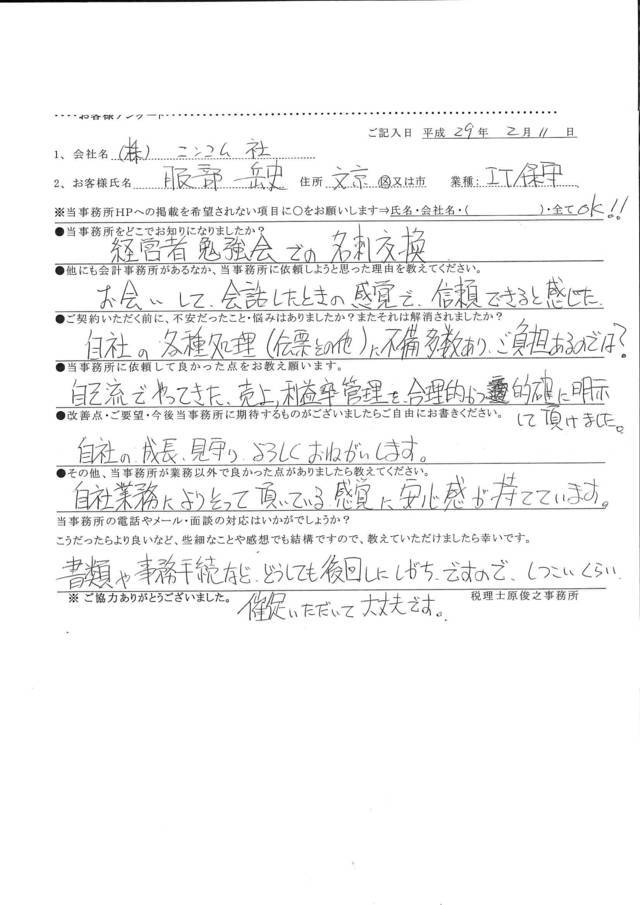 お客様アンケート
ご記入日 平成 29 年 2 月 11 日
1、会社名 (株) ニンコム 社
2、お客様氏名 服部 岳史 住所 文京 区又は市 業種: IT保守
※当事務所HPへの掲載を希望されない項目に○をお願いします⇒氏名・会社名・( )・全て OK!!
●当事務所をどこでお知りになりましたか?
経営者勉強会での名刺交換
●他にも会計事務所があるなか、当事務所に依頼しようと思った理由を教えてください。
お会いして、会話したときの感覚で、信頼できると感じた.
●ご契約いただく前に、不安だったこと・悩みはありましたか?またそれは解消されましたか?
自社の各種処理(伝票その他)に不備多数あり、ご負担あるのでは?
●当事務所に依頼して良かった点をお教え願います。
自己流でやってきた、売上,利益率管理を合理的かつ的確に明示
して頂けました。
●改善点・ご要望・今後当事務所に期待するものがございましたらご自由にお書きください。
自社の成長、見守り よろしくおねがいします。
●その他、当事務所が業務以外で良かった点がありましたら教えてください。
自社業務によりそって頂いている感覚に安心感が持てています。
当事務所の電話やメール・面談の対応はいかがでしょうか?
こうだったらより良いなど、些細なことや感想でも結構ですので、教えていただけましたら幸いです。
書類や事務手続など、どうしても後回しにしがちですので、しつこいくらい
催促いただいて大丈夫です。
※ ご協力ありがとうございました。 税理士原俊之事務所